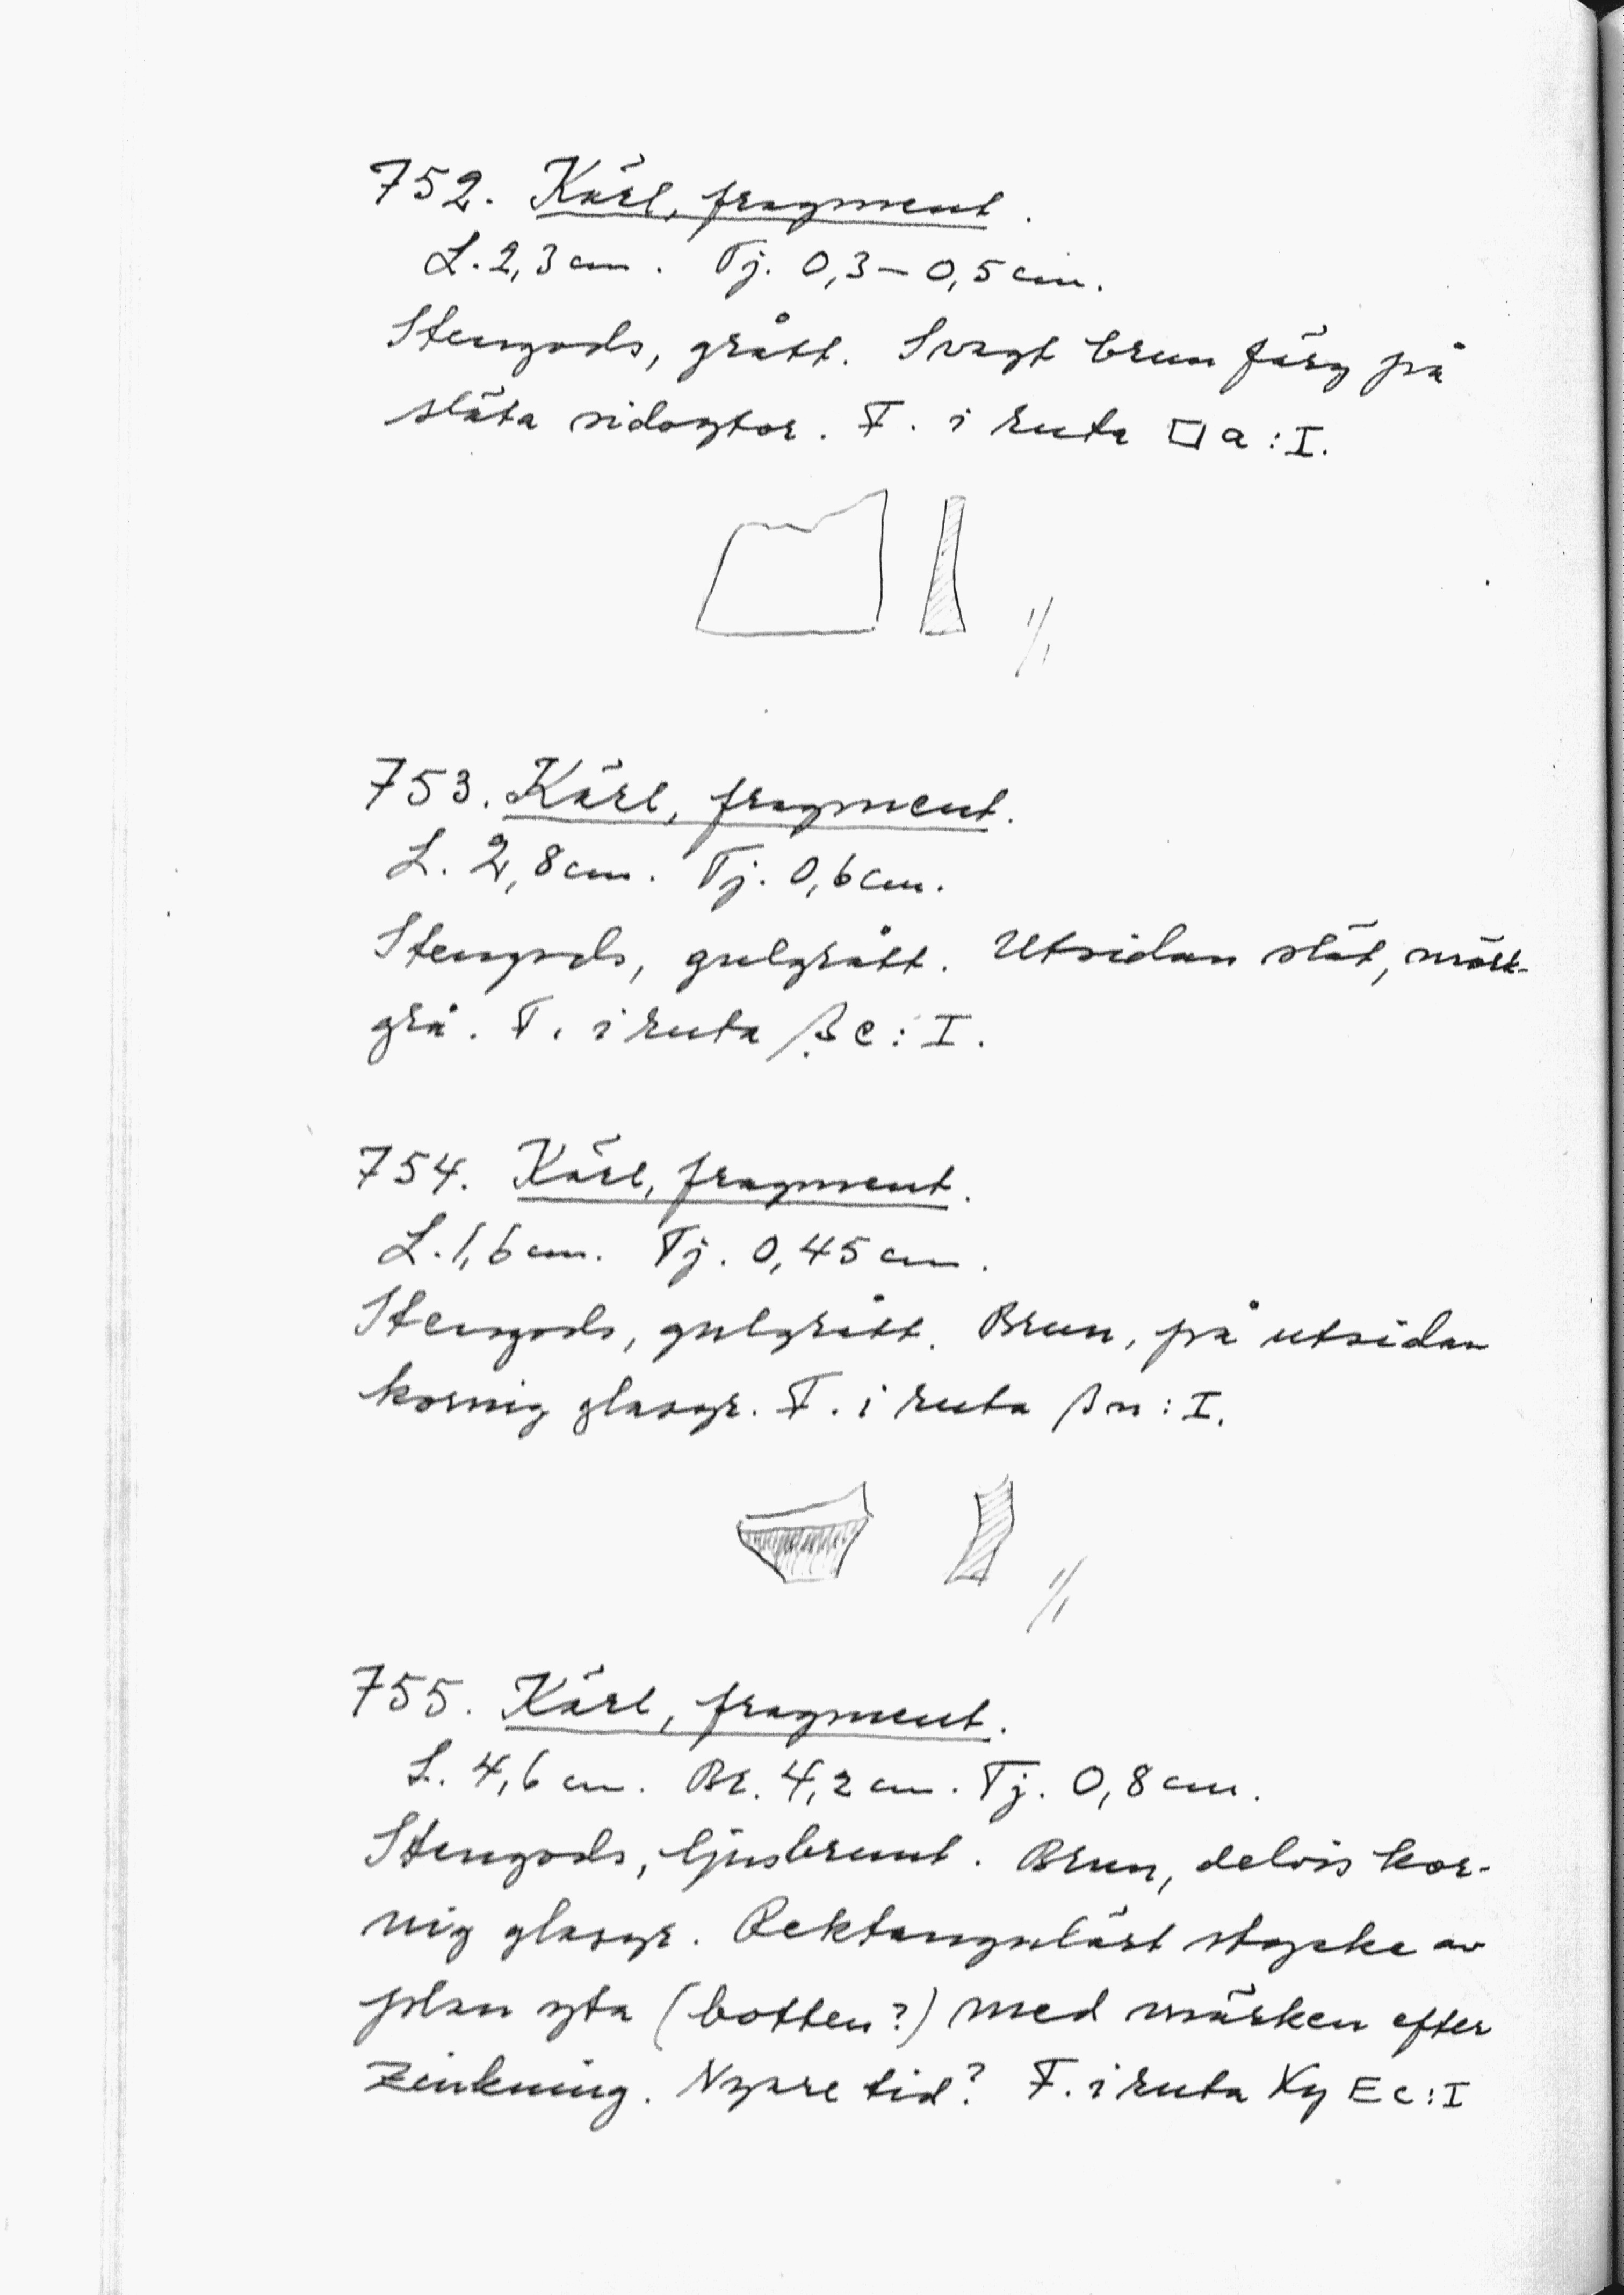 752. Kärl, fragment.
L. 2,3 cm. Tj. 0,3–0,5 cm.
Stengods, grått. Svagt brun färg på
släta sidoytor. F. i ruta □ a : I.
1/1
753. Kärl, fragment.
L. 2,8 cm. Tj. 0,6 cm.
Stengods, gulgrått. Utsidan slät, mörk-
grå. F. i ruta β e : I.
754. Kärl, fragment.
L. 1,6 cm. Tj. 0,45 cm.
Stengods, gulgrått. Brun, på utsidan
kornig glasyr. F. i ruta β n : I.
1/1
755. Kärl, fragment.
L. 4,6 cm. Br. 4,2 cm. Tj. 0,8 cm.
Stengods, ljusbrunt. Brun, delvis kor-
nig glasyr. Rektangulärt stycke av
plan yta (botten?) med märken efter
. Nyare tid? F. i ruta Xy E c : I